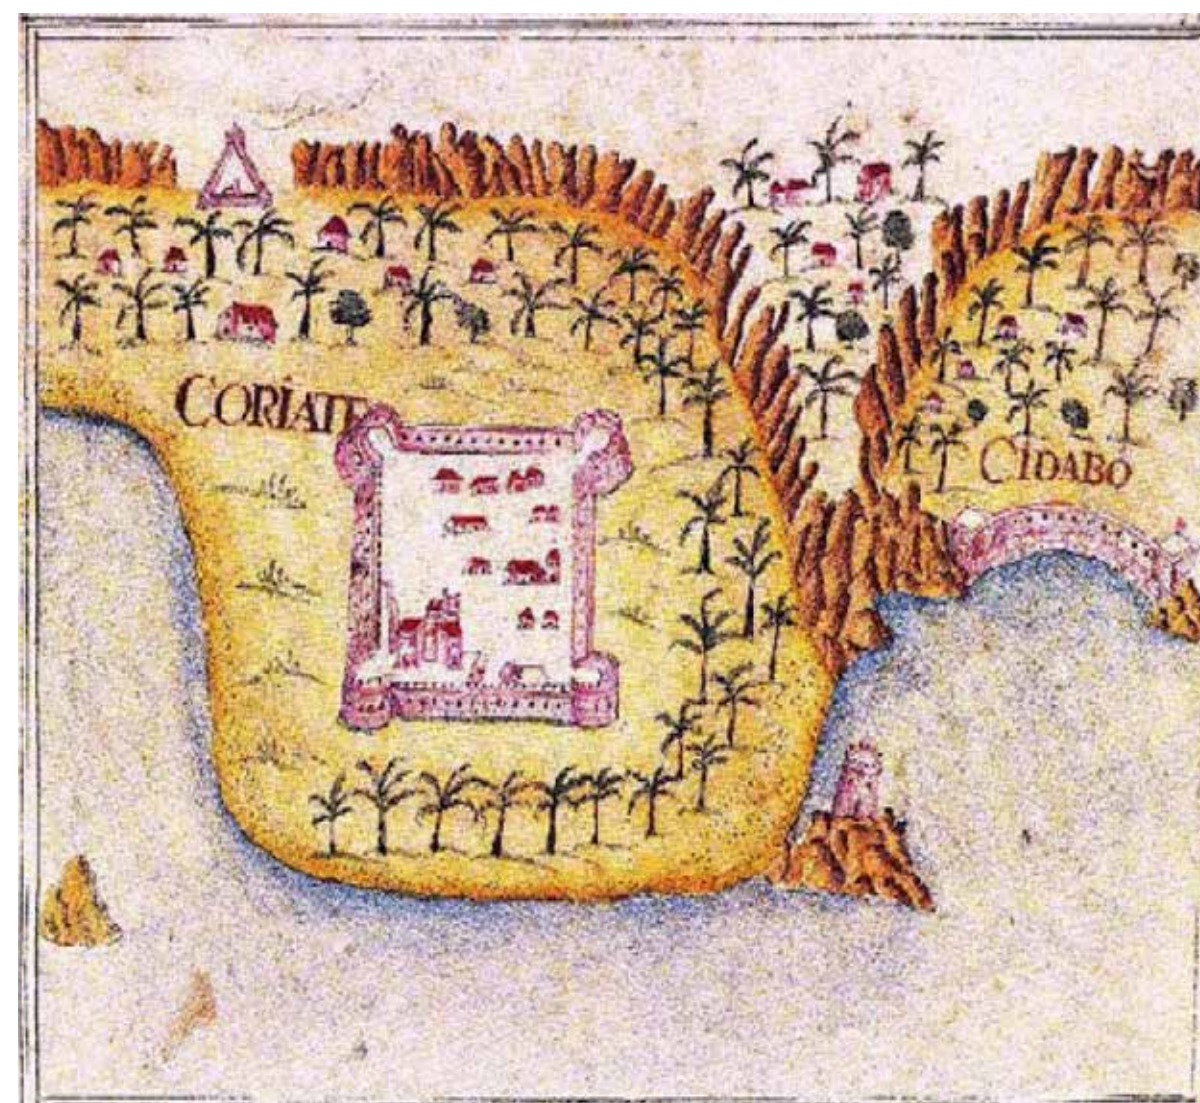 CORIATE
CIDABO